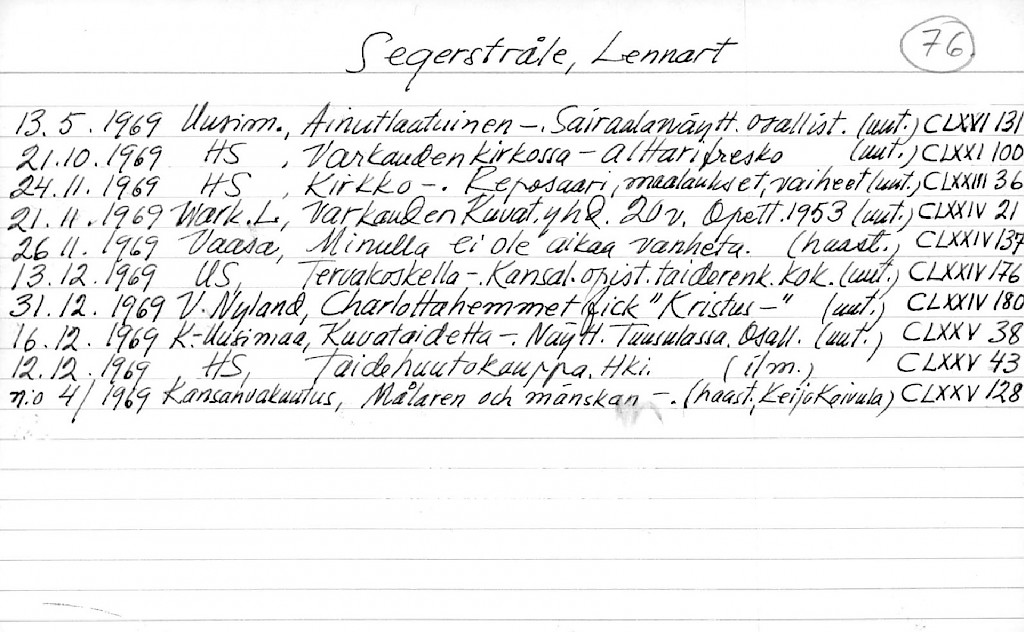 Segerstråle, Lennart 76
13.5.1969 Uusim., Ainutlaatuinen –. Sairaalanäytt. osallist. (uut.) CLXVI 131
21.10.1969 HS, Varkauden kirkossa – alttarifresko (uut.) CLXXI 100
24.11.1969 HS, Kirkko –. Reposaari, maalaukset, vaiheet (uut.) CLXXIII 36
21.11.1969 Wark.L., Varkauden Kuvat.yhd. 20 v. Opett. 1953 (uut.) CLXXIV 21
26 11. 1969 Vaasa, Minulla ei ole aikaa vanheta. (haast.) CLXXIV 137
13.12.1969 US, Tervakoskella –. Kansal.opist. taiderenk. kok. (uut.) CLXXIV 176
31.12.1969 V. Nyland, Charlottahemmet fick "Kristus –" (uut.) CLXXIV 180
16.12.1969 K-Uusimaa, Kuvataidetta –. Näytt. Tuusulassa. Osall. (uut.) CLXXV 38
12.12.1969 HS, Taidehuutokauppa. Hki. (ilm.) CLXXV 43
n:o 4/1969 Kansanvakuutus, Målaren och mänskan –. (haast. Keijo Koivula) CLXXV 128